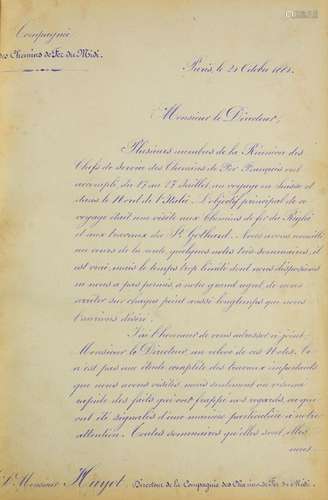 Compagnie
des Chemins de Fer du Midi.
Paris, le 21 Octobre 1881.
Monsieur le Directeur,
Plusieurs membres de la Réunion des
Chefs de Service des Chemins de Fer Français ont
accompli, du 17 au 27 Juillet, un voyage en Suisse et
dans le Nord de l'Italie. L'objectif principal de ce
voyage était une visite aux Chemins de fer du Righi
et aux travaux du St Gothard. Nous avons recueilli
au cours de la route, quelques notes très sommaires, il
est vrai, mais le temps trop limité dont nous disposions
ne nous a pas permis, à notre grand regret, de nous
arrêter sur chaque point aussi longtemps que nous
l'aurions désiré.
J'ai l'honneur de vous adresser ci-joint,
Monsieur le Directeur, un relevé de ces Notes. Ce
n'est pas une étude complète des travaux importants
que nous avons visités, mais seulement un résumé
rapide des faits qui ont frappé nos regards, ou qui
ont été signalés d'une manière particulière à notre
attention. Toutes sommaires qu'elles sont, elles
nous
Monsieur Huyot Directeur de la Compagnie des Chemins de Fer du Midi.